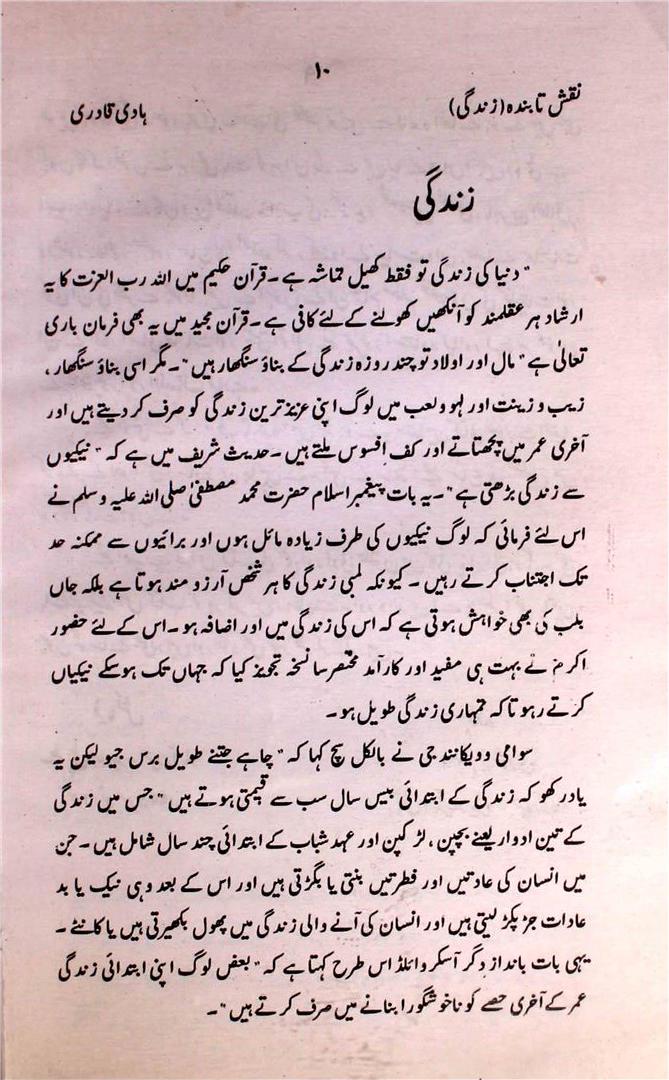 ۱۰
نقش تابندہ (زندگی)
ہادی قادری
زندگی
" دنیا کی زندگی تو فقط کھیل تماشہ ہے ۔ قرآن حکیم میں اللہ رب العزت کا یہ
ارشاد ہر عقلمند کو آنکھیں کھولنے کے لئے کافی ہے ۔ قرآن مجید میں یہ بھی فرمان باری
تعالیٰ ہے " مال اور اولاد تو چند روزہ زندگی کے بناؤ سنگھار ہیں " ۔ مگر اسی بناؤ سنگھار ،
زیب و زینت اور لہو و لعب میں لوگ اپنی عزیز ترین زندگی کو صرف کر دیتے ہیں اور
آخری عمر میں پچھتاتے اور کف افسوس ملتے ہیں ۔ حدیث شریف میں ہے کہ " نیکیوں
سے زندگی بڑھتی ہے " ۔ یہ بات پیغمبر اسلام حضرت محمد مصطفیٰ صلی اللہ علیہ وسلم نے
اس لئے فرمائی کہ لوگ نیکیوں کی طرف زیادہ مائل ہوں اور برائیوں سے ممکنہ حد
تک اجتناب کرتے رہیں ۔ کیونکہ لمبی زندگی کا ہر شخص آرزو مند ہوتا ہے بلکہ جاں
بلب کی بھی خواہش ہوتی ہے کہ اس کی زندگی میں اور اضافہ ہو ۔ اس کے لئے حضور
اکرمؐ نے بہت ہی مفید اور کارآمد مختصر سا نسخہ تجویز کیا کہ جہاں تک ہوسکے نیکیاں
کرتے رہو تاکہ تمہاری زندگی طویل ہو ۔
سوامی وویکانند جی نے بالکل سچ کہا کہ " چاہے جتنے طویل برس جیو لیکن یہ
یاد رکھو کہ زندگی کے ابتدائی بیس سال سب سے قیمتی ہوتے ہیں " جس میں زندگی
کے تین ادوار یعنے بچپن ، لڑکپن اور عہد شباب کے ابتدائی چند سال شامل ہیں ۔ جن
میں انسان کی عادتیں اور فطرتیں بنتی یا بگڑتی ہیں اور اس کے بعد وہی نیک یا بد
عادات جڑ پکڑ لیتی ہیں اور انسان کی آنے والی زندگی میں پھول بکھیرتی ہیں یا کانٹے ۔
یہی بات بانداز دگر آسکر وائلڈ اس طرح کہتا ہے کہ " بعض لوگ اپنی ابتدائی زندگی
عمر کے آخری حصے کو ناخوشگوار بنانے میں صرف کرتے ہیں " ۔